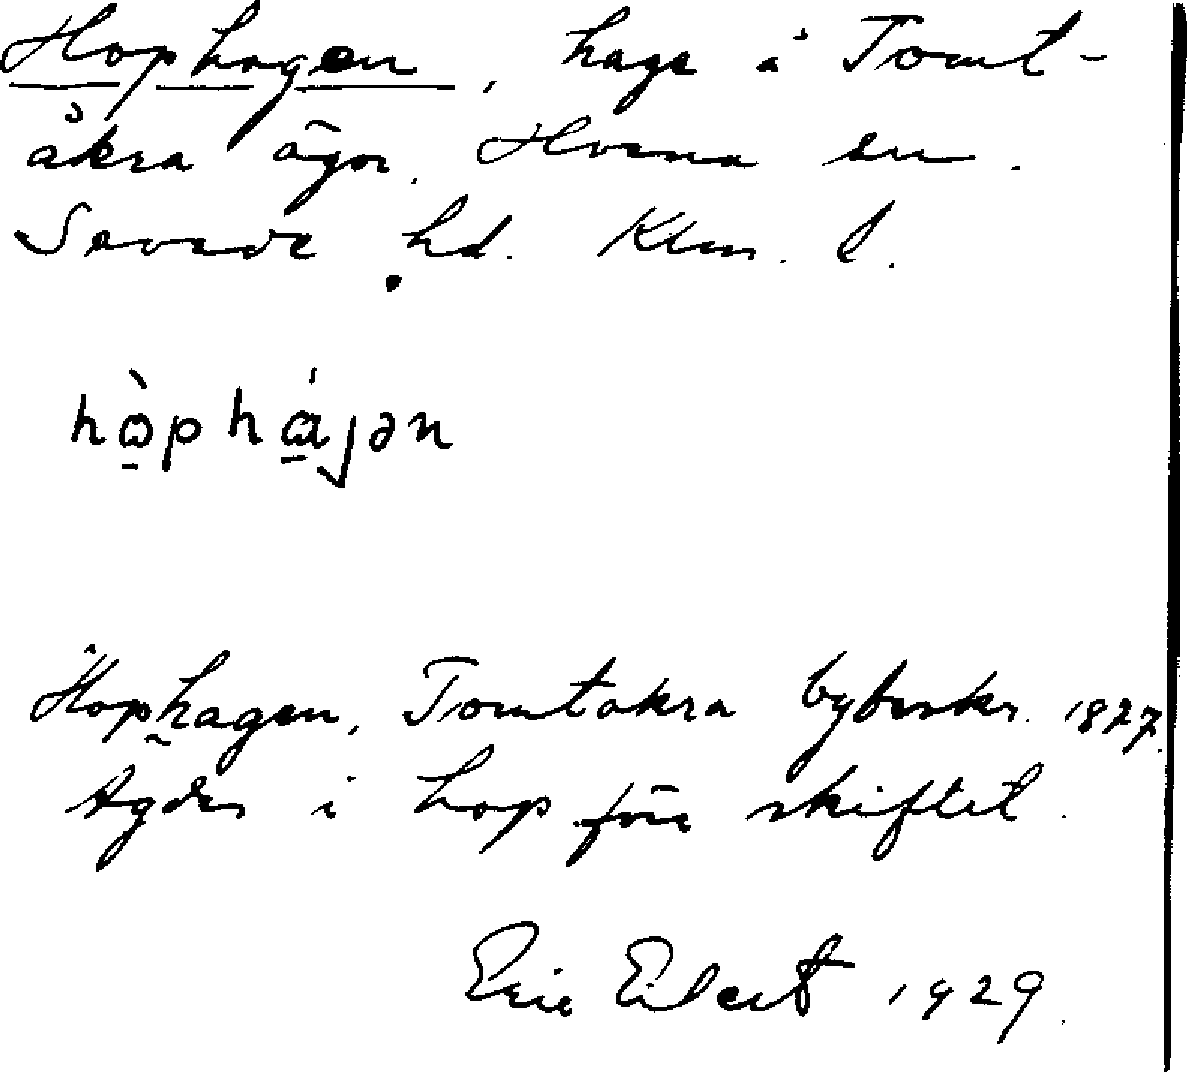 Hophagen, hage å Tomt-
åkra ägor. Horna sn.
Sevede hd. Klm. l.
hòphájən
Hophagen, Tomtåkra bybeskr. 1827.
Ägdes i hop före skiftet.
Eric Eilert 1929.